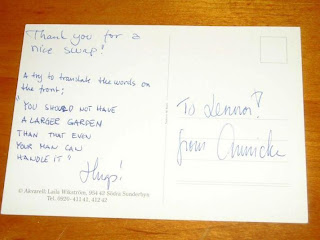 Thank you for a
nice swap!
A try to translate the words on
the front;
"YOU SHOULD NOT HAVE
A LARGER GARDEN
THAN THAT EVEN
YOUR MAN CAN
HANDLE IT"
Hugs!
To Lennor!
from Annicka
© Akvarell: Laila Wikström, 954 42 Södra Sunderbyn
Tel. 0920-411 41, 412 42